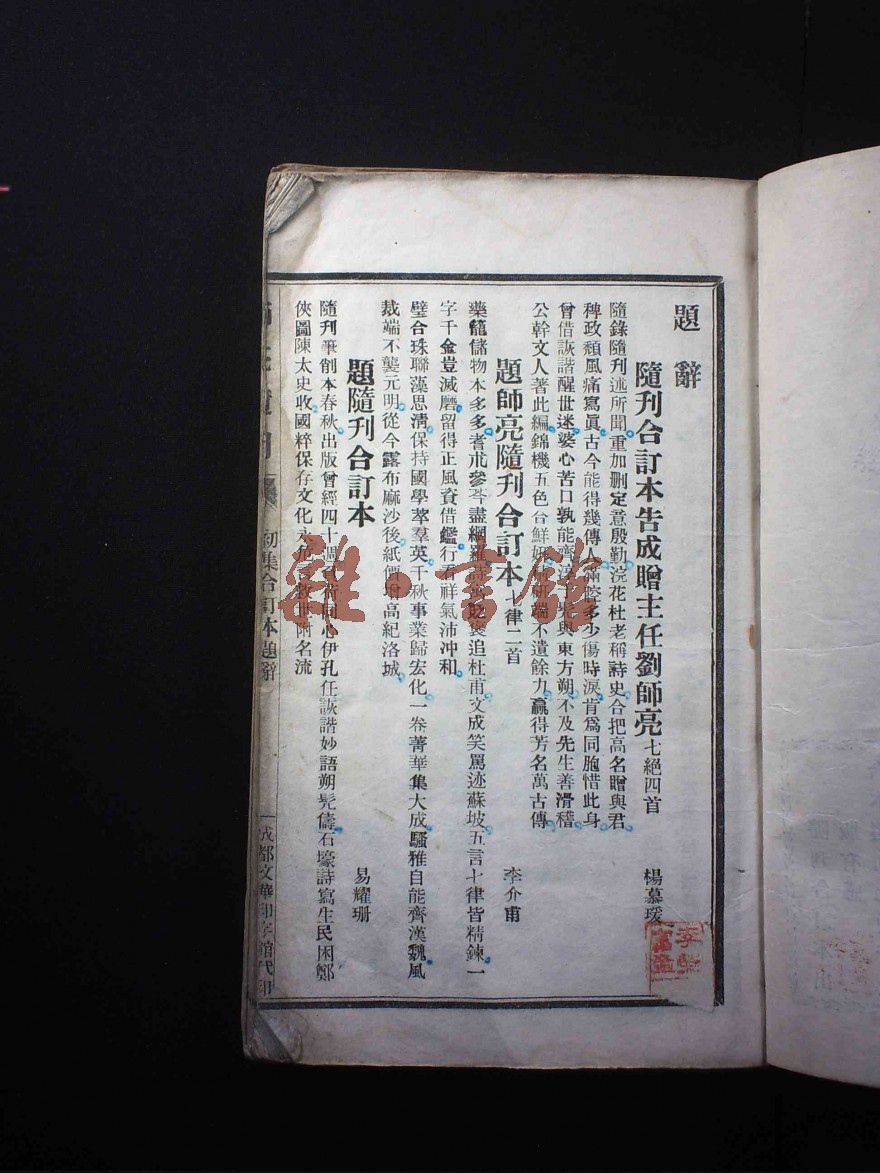 題辭
隨刋合訂本告成贈主任劉師亮 七絕四首 楊慕瑗
隨錄隨刋述所聞重加刪定意殷勤浣花杜老稱詩史合把高名贈與君
稗政頹風痛寫眞古今能得幾傳人滿腔多少傷時淚肯爲同胞惜此身
曾借詼諧醒世迷婆心苦口孰能齊 與東方朔不及先生善滑稽
公幹文人著此編錦機五色合鮮妍 端不遺餘力贏得芳名萬古傳
題師亮隨刋合訂本 七律二首 李介甫
藥籠儲物本多多耆朮參苓盡網羅詩 追杜甫文成笑罵迹蘇坡五言七律皆精鍊一
字千金豈滅磨留得正風資借鑑行看祥氣沛冲和
璧合珠聯藻思淸保持國學萃羣英千秋事業歸宏化一卷菁華集大成騷雅自能齊漢魏風
裁端不襲元明從今露布麻沙後紙價增高紀洛城
題隨刋合訂本 易耀珊
隨刋筆削本春秋出版曾經四十週 同心伊孔任詼諧妙語朔髠儔石壕詩寫生民困鄭
俠圖陳太史收國粹保存文化永 救世附名流
初集合訂本題辭
一
成都文華印字館代印
雜·書館